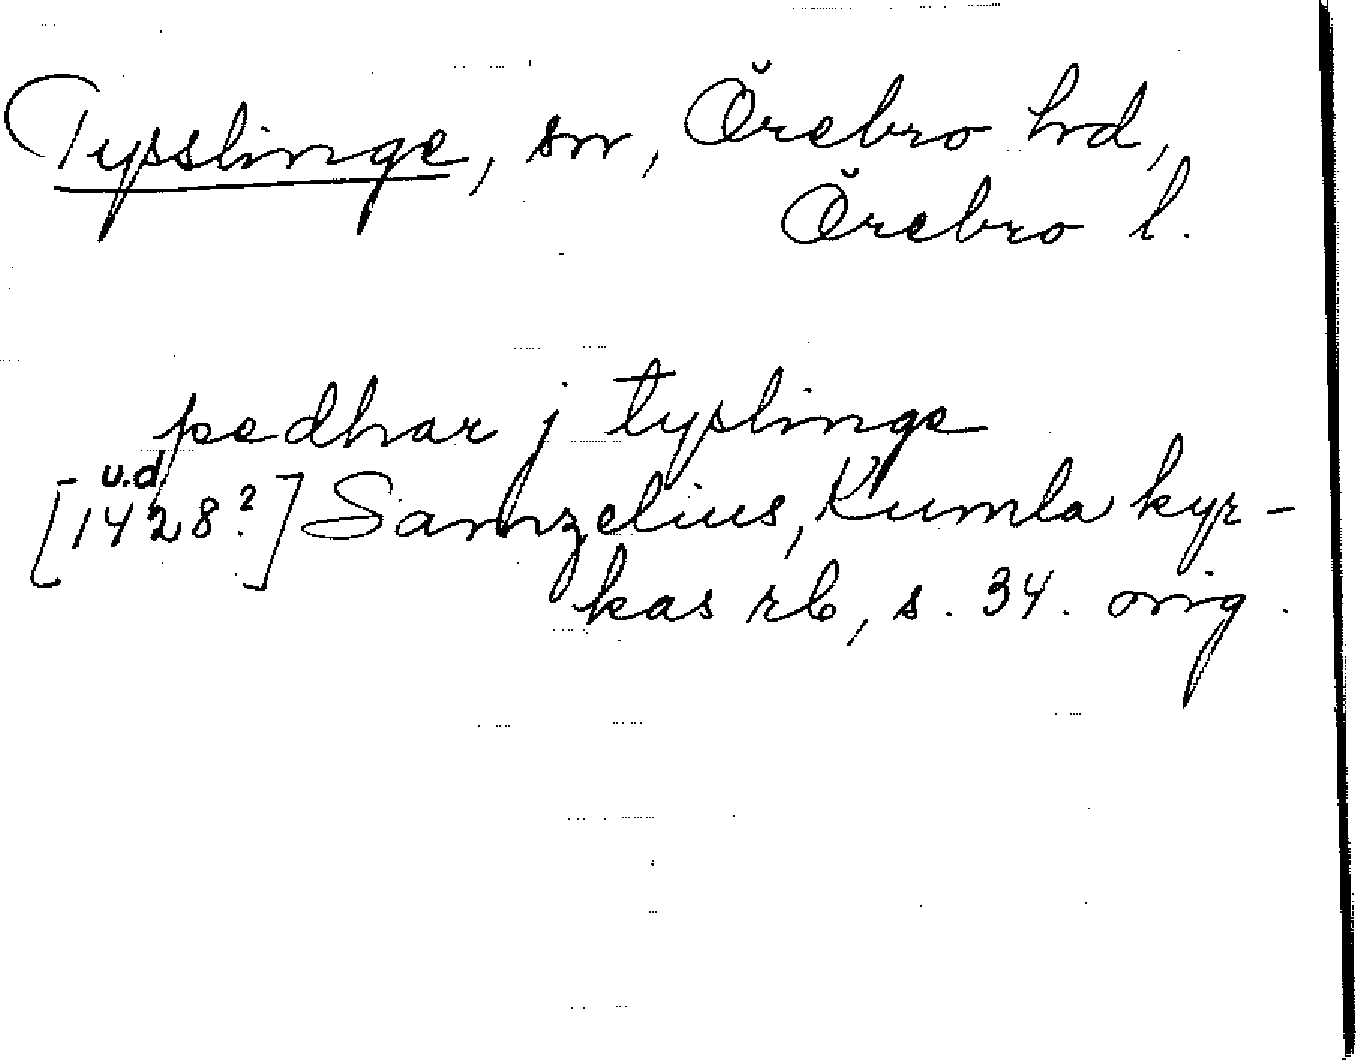 Tysslinge, sn, Örebro hd,
Örebro l.
pedhar j tyslinge
u.d.
[1428?] Samzelius, Kumla kyr-
kas rb, s. 34. orig.